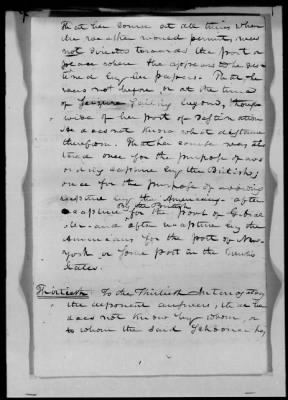 That her course at all times when
the weather would permit, was
not directed towards the port or
place where she appears to be des
tined by her papers. That she
was not before, or at the time
of seizure sailing beyond, though
wide of her port of destination
He does not know what distance
therefrom. That her course was al
tered once for the purpose of avo
iding capture by the British,
once for the purpose of avoiding
capture by the Americans after
capture by the British for the port of
and after recapture by the
Americans for the port of New
York or some port in the United
States.
Thirtieth To the Thirtieth Interrogatory
the deponent answers, that he
does not know by whom, or
to whom the said Schooner has